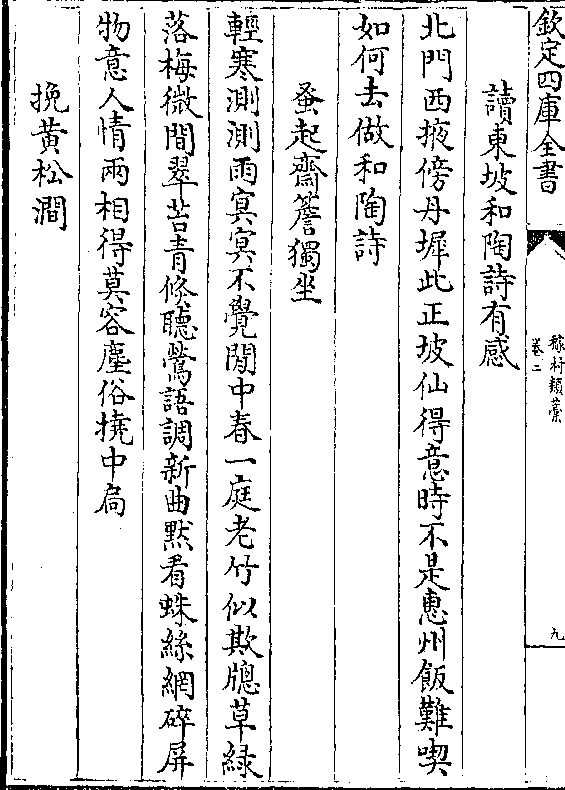 欽定四庫全書
稼村類藁
卷二
九
讀東坡和陶詩有感
北門西掖傍丹墀此正坡仙得意時不是惠州飯難喫
如何去做和陶詩
蚤起齋簷獨坐
輕寒測測雨冥冥不覺閒中春一庭老竹似欺牕草緑
落梅微間翠苔青俢聽鶯語調新曲默看蛛絲網碎屏
物意人情兩相得莫容塵俗撓中扃
挽黄松澗